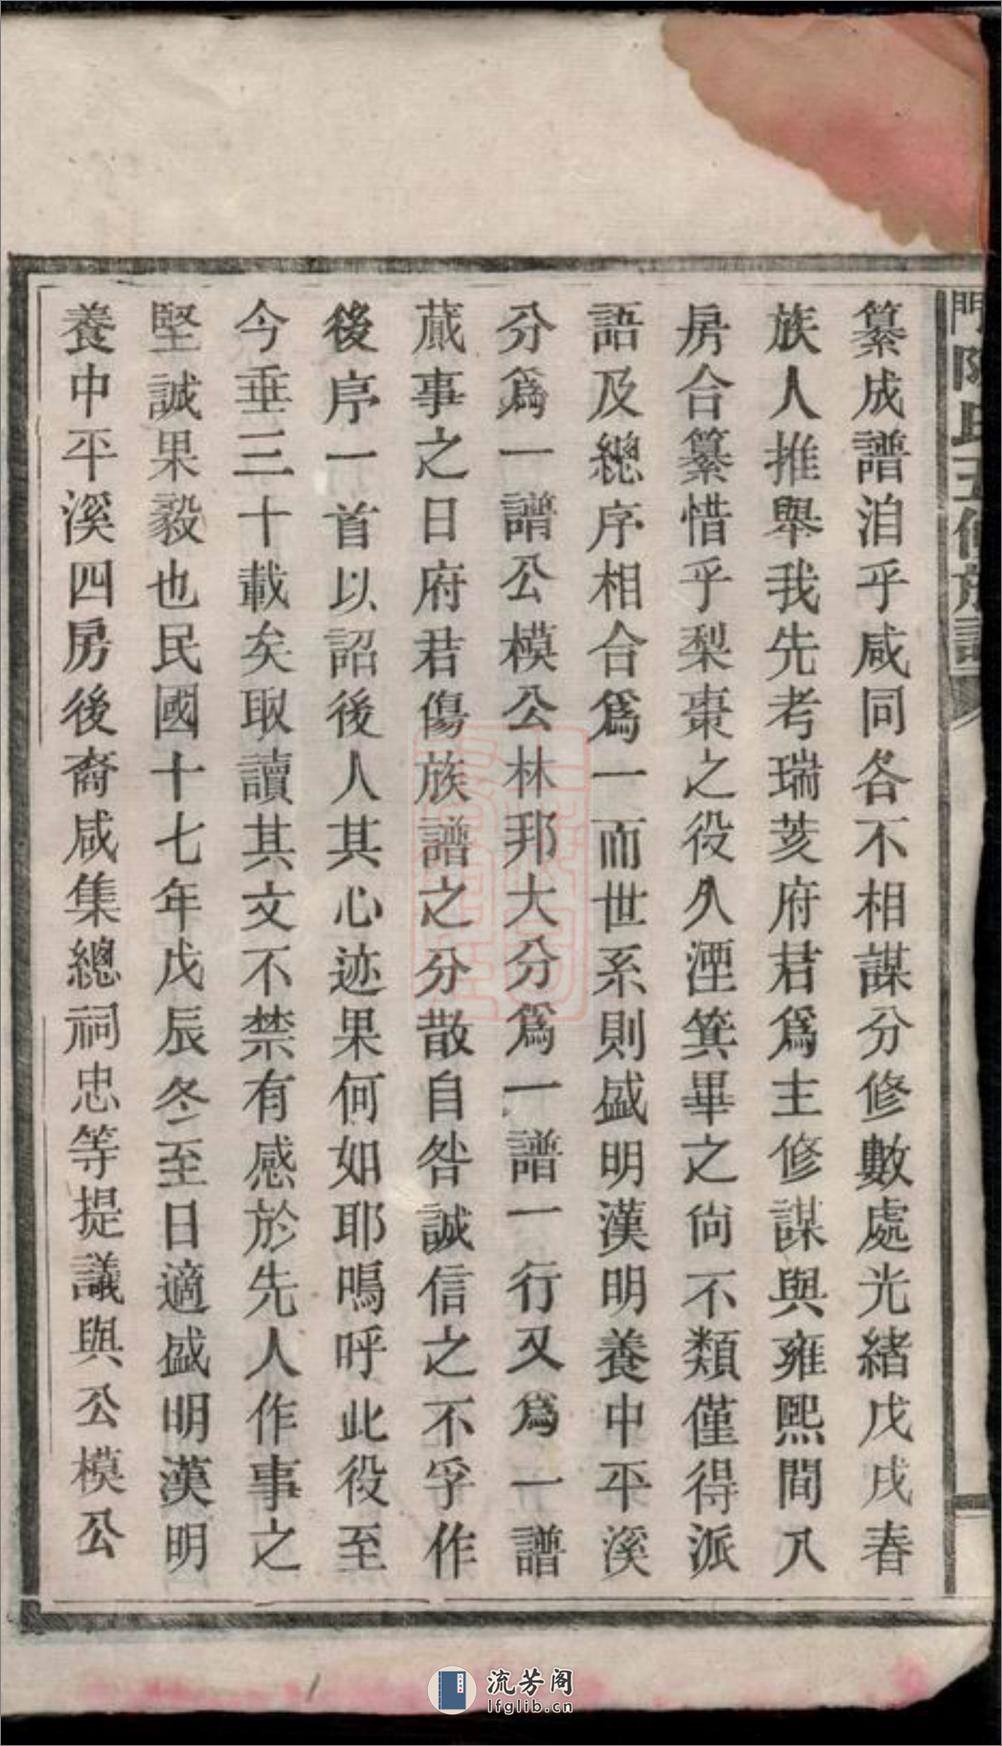 纂成譜洎乎咸同各不相謀分修數處光緒戊戌春
族人推舉我先考瑞芰府君爲主修謀與雍熙間八
房合纂惜乎梨棗之役久湮箕畢之尙不類僅得派
語及總序相合爲一而世系則盛明漢明養中平溪
分爲一譜公模公林邦大分爲一譜一行又爲一譜
蕆事之日府君傷族譜之分散自咎誠信之不孚作
後序一首以詔後人其心迹果何如耶嗚呼此役至
今垂三十載矣取讀其文不禁有感於先人作事之
堅誠果毅也民國十七年戊辰冬至日適盛明漢明
養中平溪四房後裔咸集總祠忠等提議與公模公
流芳阁
lfglib.cn